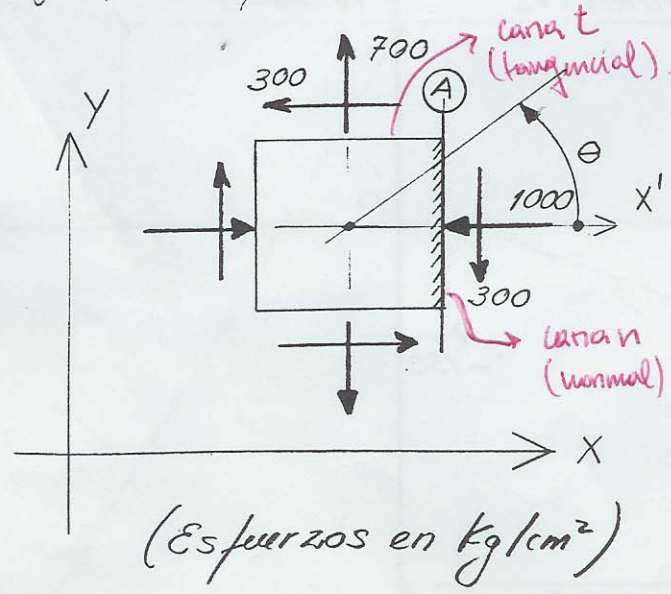 cara t
(tangencial)
700
300
A
Y
θ
1000
X'
300
cara n
(normal)
X
(Esfuerzos en Kg/cm²)